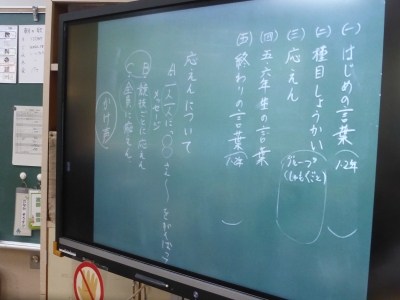 (一) はじめの言葉 (1、2年)
(二) 種目しょうかい (グループ(しゅもくごと))
(三) 応えん
(四) 五・六年生の言葉
(五) 終わりの言葉 (1、2年)
応えんについて
A 一人一人に「○○さん〜をがんばろう
メッセージ
B 競技ごとに応えん
C 全員に応えん。
かけ声